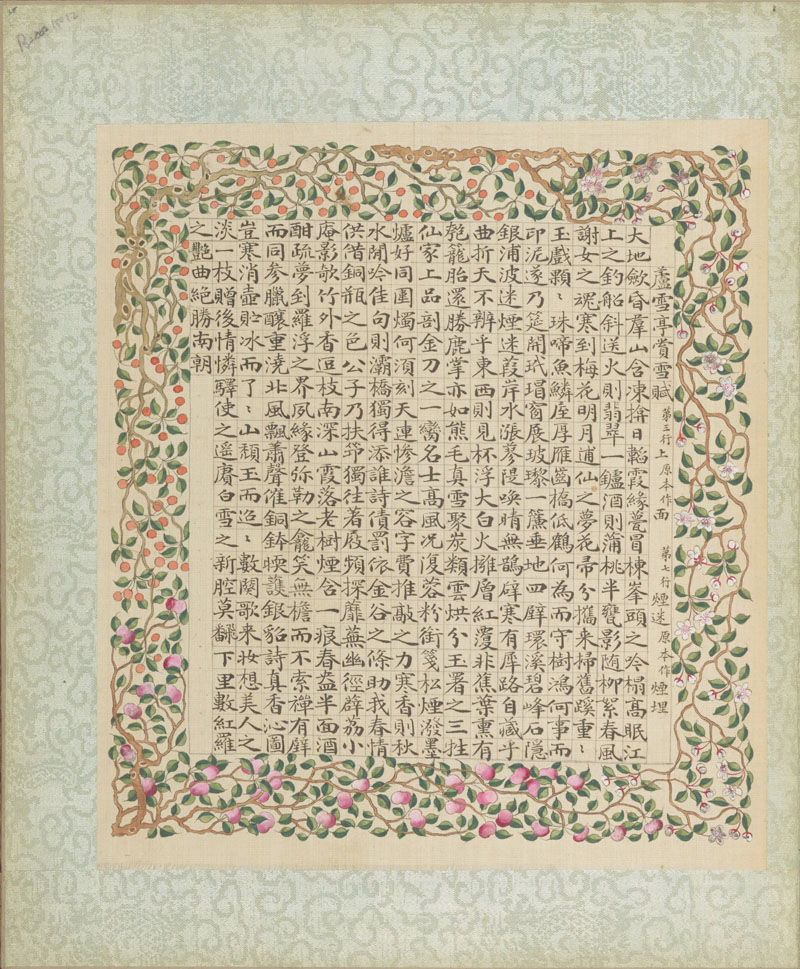 蘆雪亭賞雪賦 第三行上原本作面 第七行煙迷原本作煙埋
大地歛昏羣山含凍揜日韜霞緣甍冒棟峯頭之冷榻高眠江
上之釣船斜送火則翡翠一鑪酒則蒲桃半甕影随柳絮春風
謝女之魂寒到梅花明月逋仙之夢花帚分攜来掃舊蹊重〻
玉戲顆〻珠啼魚鱗厚雁齒橋低鶴何為而守樹鴻何事而
印泥遂乃筵開玳瑁窗展玻瓈一簾垂地四壁環溪碧峰石隱
銀浦波迷煙迷葭岸水漲蓼隄喚晴無鵲辟寒有犀路自藏乎
曲折天不辨乎東西則見杯浮大白火擁層紅覆非蕉葉熏有
籠胎還勝鹿掌亦如熊毛真雪聚炭類雲烘兮王署之三牲
仙家上品剖金刀之一臠名士高風况復蓉粉銜箋松煙潑墨
爐好同圍燭何須刻天連慘澹之容字費推敲之力寒香則秋
水閒吟佳句則灞橋獨得添誰詩債罰依金谷之條助我春情
供借銅瓶之色公子乃扶筇獨往著屐頻探蘼蕪幽徑薜荔小
庵影歌竹外香逗枝南深山霞落老樹煙含一痕春盎半面酒
酣疏夢到羅浮之界夙緣登弥勒之龕笑無檐而不索禪有壁
而同参臘釀重澆北風飄蕭聲催銅鉢煗護銀貂詩真香沁圖
豈寒消壺貯冰而了〻山頹玉而迢〻數闋歌来妝想美人之
淡一枝贈後情憐驛使之遥賡白雪之新腔莫翻下里數紅羅
之艷曲絶勝南朝